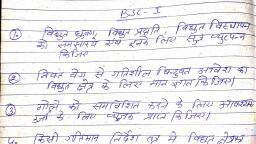 BSC - I
① विद्युत ध्रुवण, विद्युत प्रवृति, विद्युत विस्थापन
को समझाइये एवं इनके लिए सूत्र व्युत्पन्न
किजिए
② नियत वेग से गतिशील बिन्दुवत आवेश का
विद्युत क्षेत्र के लिए मान ज्ञात किजिए।
③ गोले को समावेशित करने के लिए आवश्यक
ऊर्जा के लिए व्यंजक प्राप्त किजिए।
4. किसी गतिमान निर्देश तंत्र में विद्युत क्षेत्रफ